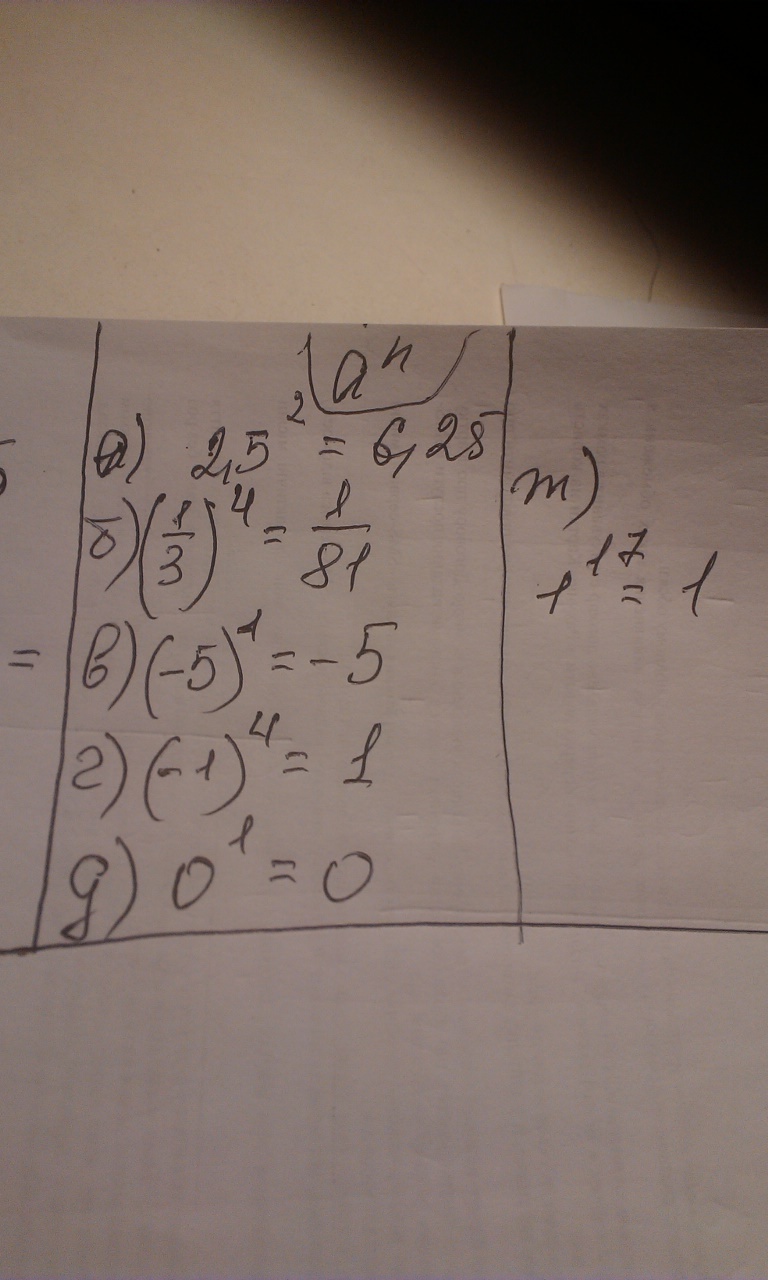 aⁿ
а) 2,5² = 6,25
б) (1/3)⁴ = 1/81
в) (-5)¹ = -5
г) (-1)⁴ = 1
д) 0¹ = 0
m)
1¹⁷ = 1
=